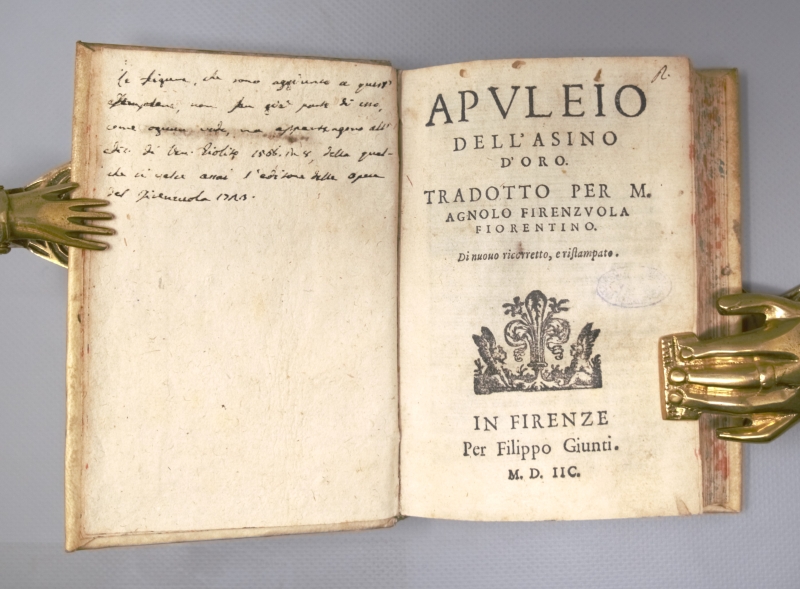 Le figure, che sono aggiunte a quest'
esemplare, non fan già parte di esso,
come ognun vede, ma appartengono all'
ediz. di Ven. Giolito 1566. in 8, della qual-
che si vale assai l'editore delle opere
del Firenzuola
R.
APVLEIO
DELL'ASINO
D'ORO.
TRADOTTO PER M.
AGNOLO FIRENZVOLA
FIORENTINO.
Di nuouo ricorretto, e ristampato.
IN FIRENZE
Per Filippo Giunti.
M. D. IIC.